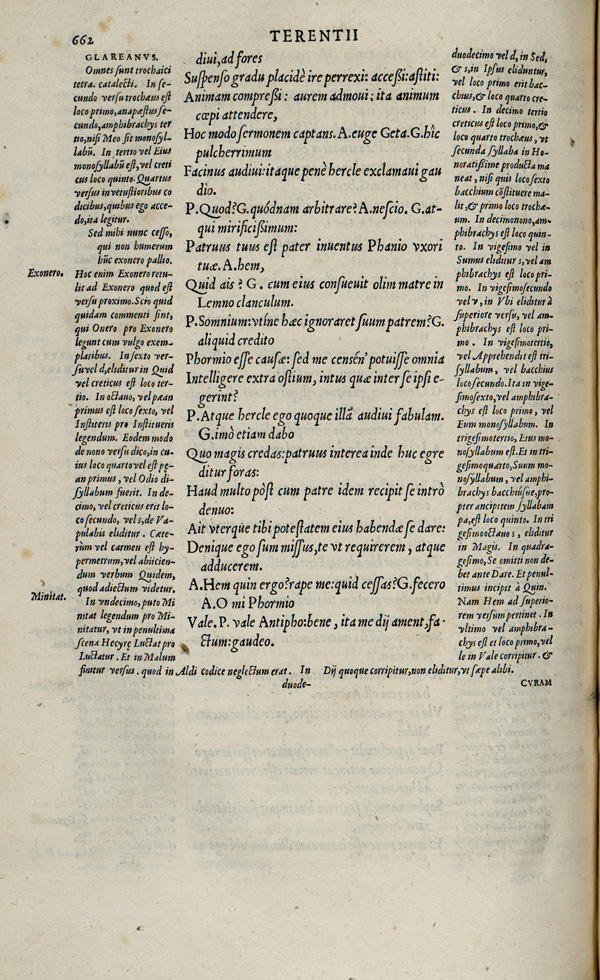 662
TERENTII
GLAREANVS.
Omnes sunt trochaici
tetra. catalecti. In se-
cundo versu trochæus est
loco primo, anapæstus se-
cundo, amphibrachys ter
tio, nisi Meo sit monosyl-
labũ. In tertio vel Eius
monosyllabũ est, vel creti
cus loco quinto. Quartus
versus in vetustioribus co
dicibus, quibus ego acce-
do, ita legitur.
Sed mihi nunc cesso,
qui non humerum
hũc exonero pallio.
Exonero.
Hoc enim Exonero retu-
lit ad Exonero quod est
versu proximo. Scio quid
quidam commenti sint,
qui Onero pro Exonero
legunt cum vulgo exem-
plaribus. In sexto ver-
su vel d, eliditur in Quid
vel creticus est loco ter-
tio. In octauo, vel pæan
primus est loco sexto, vel
Institeris pro Institueris
legendum. Eodem modo
de nono versu dico, in cu-
ius loco quarto vel est pę-
an primus, vel Odio di-
syllabum fuerit. In de-
cimo, vel creticus erit lo-
co secundo, vel s, de Va-
pulabis eliditur. Cæte-
rùm vel carmen est hy-
permetrum, vel abiicien-
dum verbum Quidem,
quod adiectum videtur.
Minitat.
In vndecimo, puto Mi
nitat legendum pro Mi-
nitatur, vt in penultima
scena Hecyrę Luctat pro
Luctatur. Et in Malum
finitur versus. quod in Aldi codice neglectum erat. In
duode-
diui, ad fores
Suspenso gradu placidè ire perrexi: accessi: astiti:
Animam compressi: aurem admoui: ita animum
cœpi attendere,
Hoc modo sermonem captans. A. euge Geta. G. hîc
pulcherrimum
Facinus audiui: itaque penè hercle exclamaui gau
dio.
P. Quod? G. quódnam arbitrare? A. nescio. G. at-
qui mirificißimum:
Patruus tuus est pater inuentus Phanio vxori
tuæ. A. hem,
Quid ais? G. cum eius consueuit olim matre in
Lemno clanculum.
P. Somnium: vtîne hæc ignoraret suum patrem? G.
aliquid credito
Phormio esse causæ: sed me censén' potuisse omnia
Intelligere extra ostium, intus quæ inter se ipsi e-
gerint?
P. Atque hercle ego quoque illã audiui fabulam.
G. imò etiam dabo
Quo magis credas: patruus interea inde huc egre
ditur foras:
Haud multo pòst cum patre idem recipit se intrò
denuo:
Ait vterque tibi potestatem eius habendæ se dare:
Denique ego sum missus, te vt requirerem, atque
adducerem.
A. Hem quin ergo? rape me: quid cessas? G. fecero
A. O mi Phormio
Vale. P. vale Antipho: bene, ita me dij ament, fa-
ctum: gaudeo.
duodecimo vel d, in Sed,
& s, in Ipsus eliduntur,
vel loco primo erit bac-
chius, & loco quarto cre-
ticus. In decimo tertio
creticus est loco primo, &
loco quarto trochæus, vt
secunda syllaba in Ho-
noratißime producta ma
neat, nisi quis loco sexto
bacchium cõstituere ma-
lit, & primo loco trochæ-
um. In decimonono, am-
phibrachys est loco quin-
to. In vigesimo vel in
Sumus eliditur s, vel am
phibrachys est loco pri-
mo. In vigesimosecundo
vel v, in Vbi eliditur à
superiore versu, vel am-
phibrachys est loco pri-
mo. In vigesimotertio,
vel Apprehendit est tri-
syllabum, vel bacchius
loco secundo. Ita in vige-
simosexto, vel amphibra-
chys est loco primo, vel
Eum monosyllabum. In
trigesimotertio, Eius mo-
nosyllabum est. Et in tri-
gesimoquarto, Suum mo-
nosyllabum, vel amphi-
brachys bacchiúsue, pro-
pter ancipitem syllabam
pa, est loco quinto. In tri
gesimooctauo s, eliditur
in Magis. In quadra-
gesimo, Se omitti non de-
bet ante Dare. Et penul-
timus incipit à Quin.
Nam Hem ad superio-
rem versum pertinet. In
vltimo vel amphibra-
chys est et loco primo, vel
le in Vale corripitur. &
Dij quoque corripitur, non eliditur, vt sæpe alibi.
CVRAM